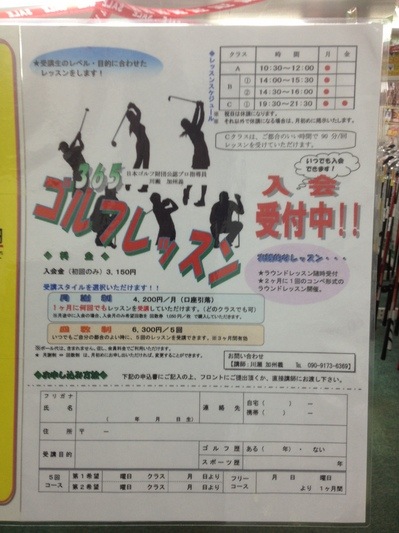 ★受講生のレベル・目的に合わせた
レッスンをします！
◆レッスンスケジュール◆
クラス 時間 月 金
A 10:30～12:00 ●
B ① 14:00～15:30 ●
② 14:30～16:00 ●
C ① 19:30～21:30 ● ●
※ 祝日は休講になります。
※ それ以外で休講になる場合は、月初めに掲示いたします。
Cクラスは、ご都合のいい時間で 90 分/回
レッスンを受けていただけます。
いつでも入会
できます！
日本ゴルフ財団公認プロ指導員
365
ゴルフレッスン
入会
受付中!!
◆料金◆
入会金（初回のみ）3,150円
受講スタイルを選択いただけます!!
月謝制 4,200円／月（口座引落）
1ヶ月に何回でもレッスンを受講していただけます。（どのクラスでも可）
回数制 6,300円／5回
いつでもご自分の都合のよい時に、5回のレッスンを受講できます。※3ヶ月間有効
★ラウンドレッスン随時受付
★2ヶ月に1回のコンペ形式の
ラウンドレッスン開催。
お問い合わせ
◆お申し込み方法◆ 下記の申込書にご記入の上、フロントにご提出頂くか、直接講師にお渡し下さい。
フリガナ
氏名
（ 年 月 日生）
連絡先 自宅（ ） －
携帯（ ） －
住所 〒 －
受講目的
ゴルフ歴 ある（ 年）・ ない
スポーツ歴 年
5回
コース
第1希望 曜日 クラス 月 日より
第2希望 曜日 クラス 月 日より
フリー
コース
月 日 曜日
より 1ヶ月間